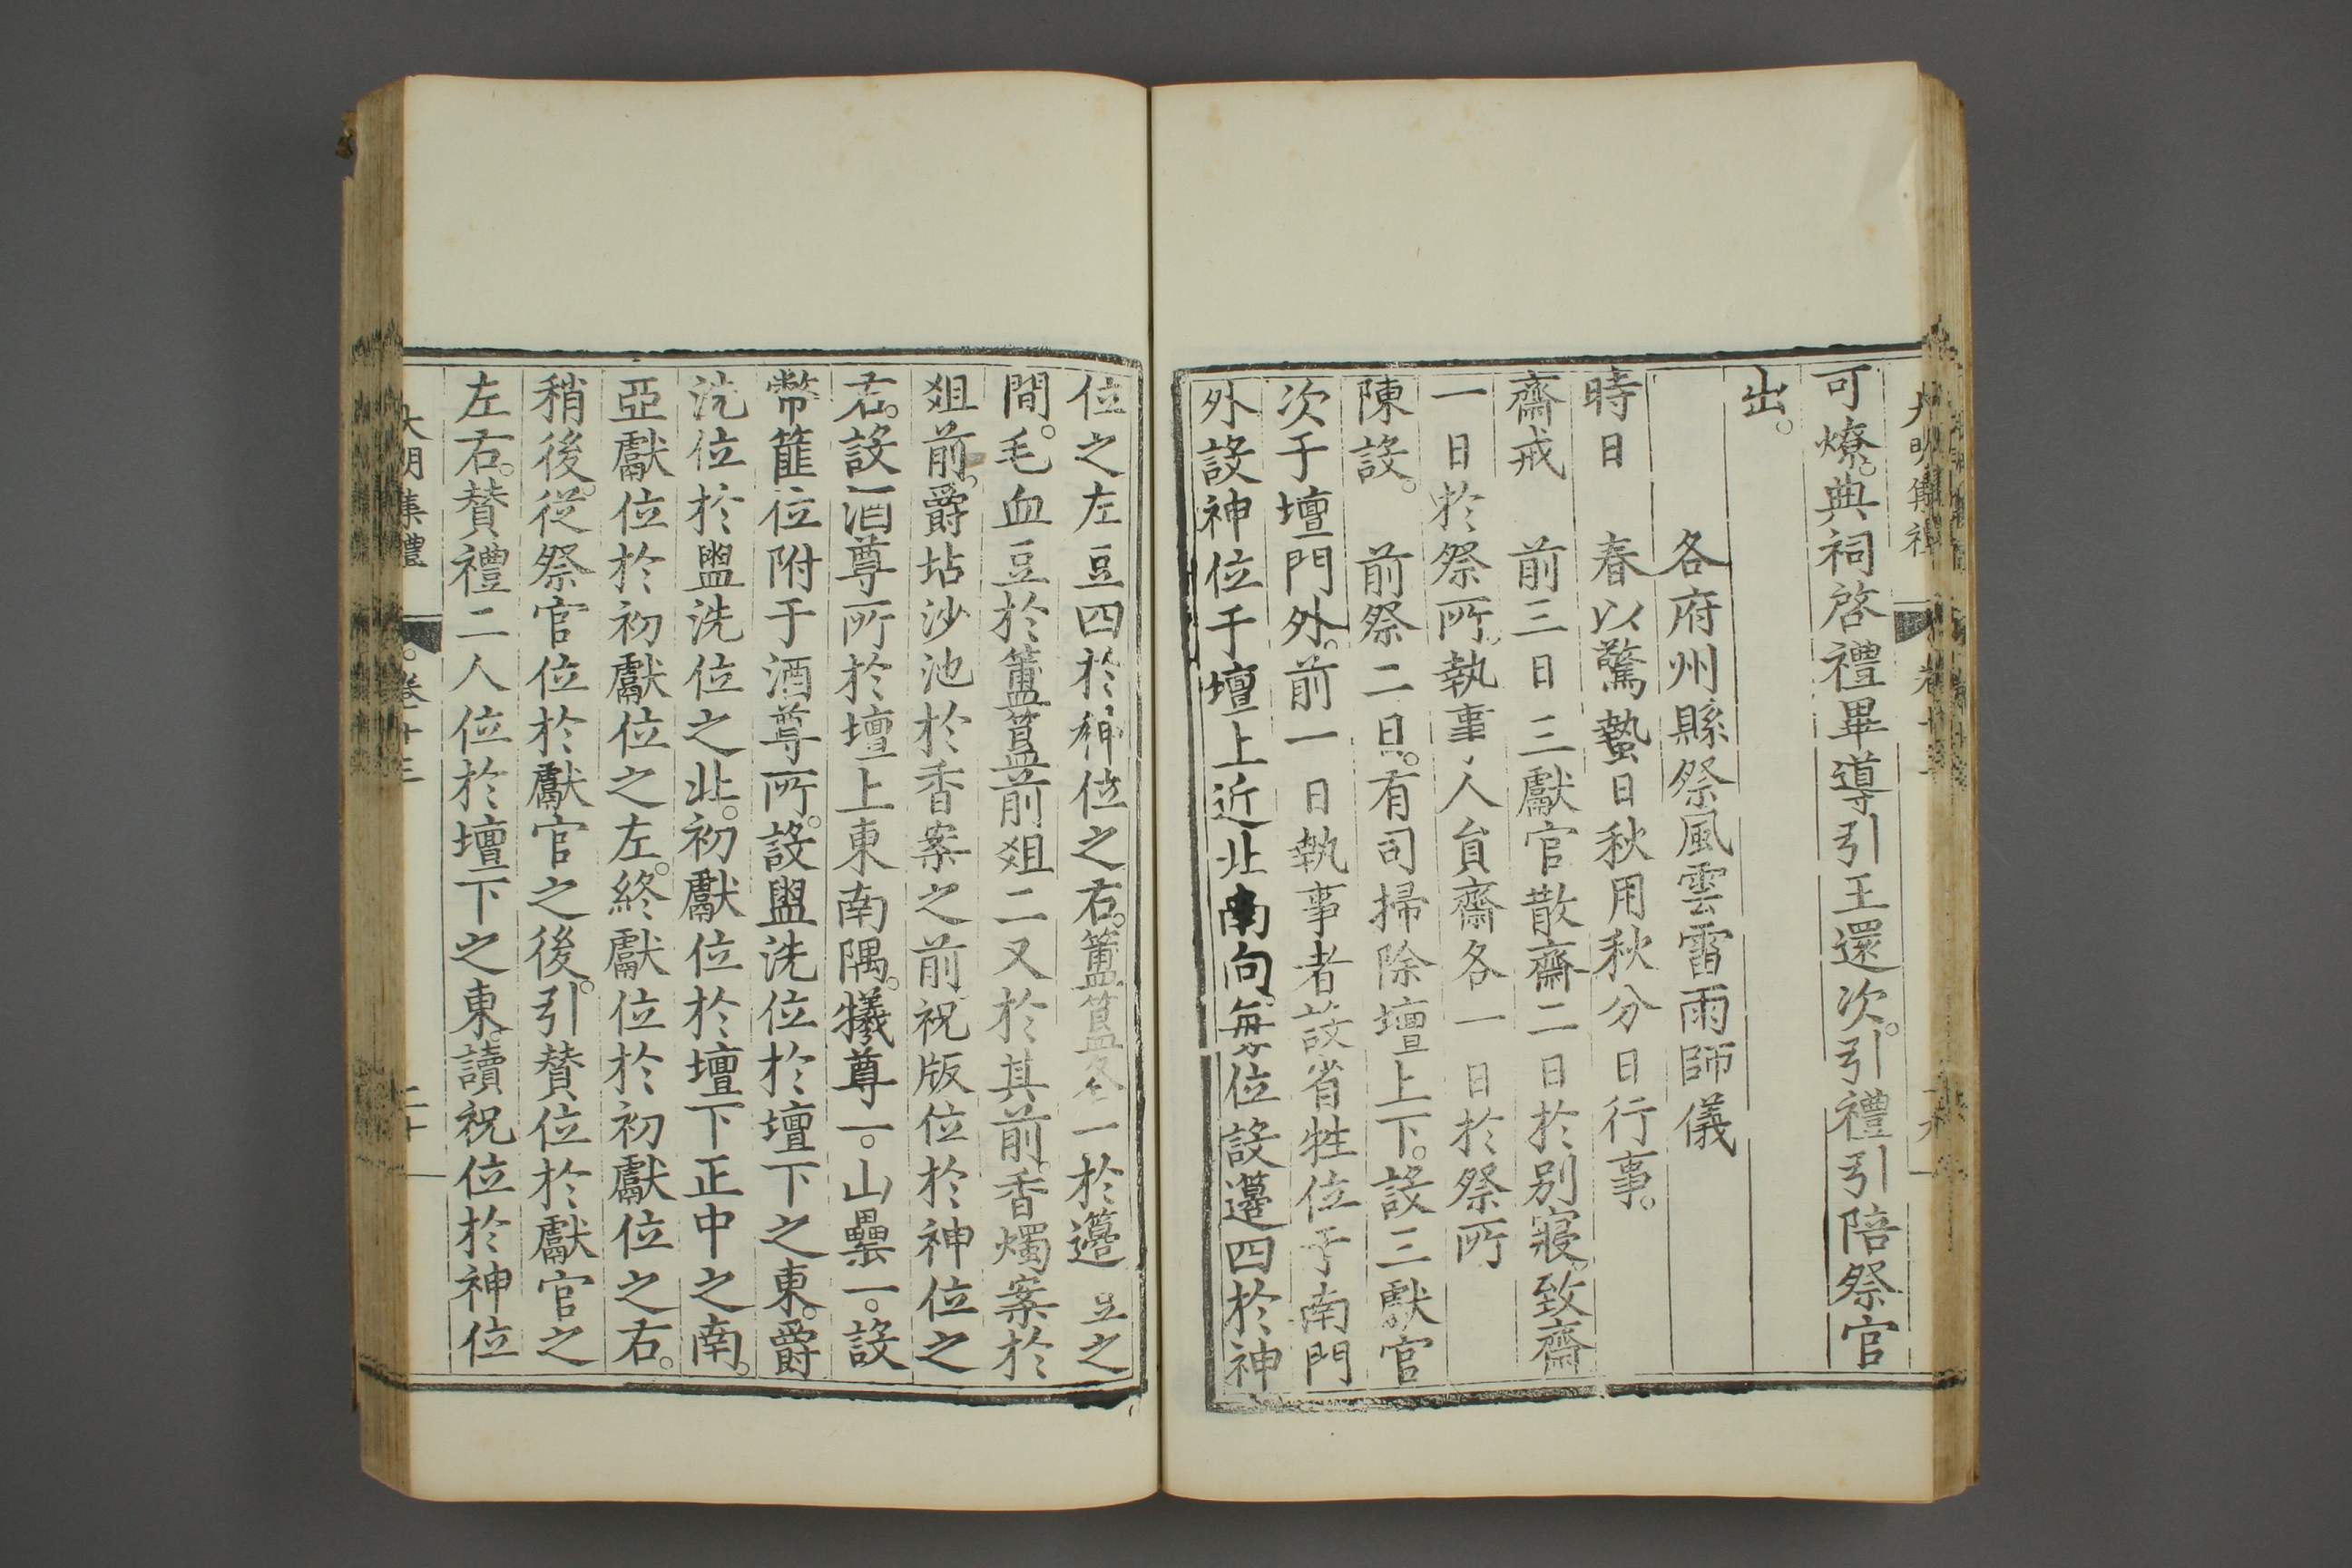 可燎。典祠啓禮畢導引王還次。引禮引陪祭官
出。
各府州縣祭風雲雷雨師儀
時日　春以驚蟄日秋用秋分日行事。
齋戒　前三日三獻官散齋二日於別寢。致齋
一日於祭所。執事人貟齋各一日於祭所
陳設。　前祭二日。有司掃除壇上下。設三獻官
次于壇門外。前一日執事者設省牲位于南門
外設神位于壇上近北南向。每位設籩四於神
位之左豆四於神位之右。簠簋各一於籩豆之
間。毛血豆於簠簋前俎二又於其前。香燭案於
俎前。爵坫沙池於香案之前祝版位於神位之
右。設酒尊所於壇上東南隅。犧尊一。山罍一。設
幣篚位附于酒尊所。設盥洗位於壇下之東。爵
洗位於盥洗位之北。初獻位於壇下正中之南。
亞獻位於初獻位之左。終獻位於初獻位之右。
稍後。從祭官位於獻官之後。引贊位於獻官之
左右。贊禮二人位於壇下之東。讀祝位於神位
大明集禮　卷十三　二十